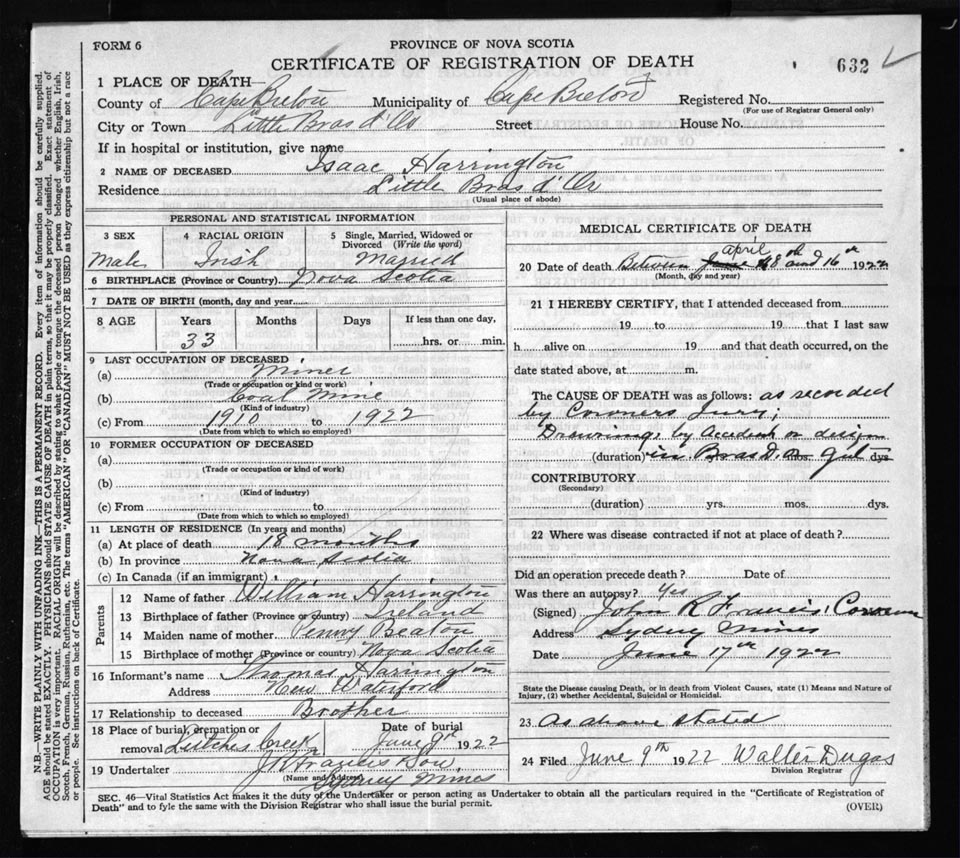 FORM 6
PROVINCE OF NOVA SCOTIA
CERTIFICATE OF REGISTRATION OF DEATH
632
1 PLACE OF DEATH
County of Cape Breton Municipality of Cape Breton Registered No.
(For use of Registrar General only)
City or Town Little Bras d'Or Street House No.
If in hospital or institution, give name
2 NAME OF DECEASED Isaac Harrington
Residence Little Bras d'Or
(Usual place of abode)
PERSONAL AND STATISTICAL INFORMATION
3 SEX 4 RACIAL ORIGIN 5 Single, Married, Widowed or Divorced (Write the word)
Male Irish Married
6 BIRTHPLACE (Province or Country) Nova Scotia
7 DATE OF BIRTH (month, day and year)
8 AGE Years Months Days If less than one day,
33 hrs. or min.
9 LAST OCCUPATION OF DECEASED
(a) Miner
(Trade or occupation or kind of work)
(b) Coal Mine
(Kind of industry)
(c) From 1910 to 1922
(Date from which to which so employed)
10 FORMER OCCUPATION OF DECEASED
(a)
(Trade or occupation or kind of work)
(b)
(Kind of industry)
(c) From to
(Date from which to which so employed)
11 LENGTH OF RESIDENCE (In years and months)
(a) At place of death 18 months
(b) In province Nova Scotia
(c) In Canada (if an immigrant)
Parents
12 Name of father William Harrington
13 Birthplace of father (Province or country) Ireland
14 Maiden name of mother Penny Beaton
15 Birthplace of mother (Province or country) Nova Scotia
16 Informant's name Thomas Harrington
Address New Waterford
17 Relationship to deceased Brother
18 Place of burial, cremation or removal Date of burial
Creek June 9th 1922
19 Undertaker J W Francis Son
(Name and Address) Sydney Mines
MEDICAL CERTIFICATE OF DEATH
april
20 Date of death Between 8th and 16th 1922
(Month, day and year)
21 I HEREBY CERTIFY, that I attended deceased from
19 to 19 that I last saw
h alive on 19 and that death occurred, on the
date stated above, at m.
The CAUSE OF DEATH was as follows: as recorded
by Coroners Jury;
Drowning by accident or design
(duration) in yrs. Bras d'Or mos. gut dys
CONTRIBUTORY
(Secondary)
(duration) yrs. mos. dys.
22 Where was disease contracted if not at place of death?
Did an operation precede death? Date of
Was there an autopsy? Yes
(Signed) John R Francis Coroner
Address Sydney Mines
Date June 17th 1922
State the Disease causing Death, or in death from Violent Causes, state (1) Means and Nature of Injury, (2) whether Accidental, Suicidal or Homicidal.
23 As above stated
24 Filed June 9th 1922 Walter Dugas
Division Registrar
SEC. 46—Vital Statistics Act makes it the duty of the Undertaker or person acting as Undertaker to obtain all the particulars required in the "Certificate of Registration of
Death" and to fyle the same with the Division Registrar who shall issue the burial permit.
(OVER)
N.B.—WRITE PLAINLY WITH UNFADING INK—THIS IS A PERMANENT RECORD. Every item of information should be carefully supplied.
AGE should be stated EXACTLY. PHYSICIANS should STATE CAUSE OF DEATH in plain terms, so that it may be properly classified. Exact statement of
OCCUPATION is very important. RACIAL ORIGIN will be described by stating to what people or tongue the deceased person belonged, whether English, Irish,
Scotch, French, German, Russian, Ruthenian, etc. The terms "AMERICAN" OR "CANADIAN" MUST NOT BE USED as they express citizenship but not a race
or people. See instructions on back of Certificate.